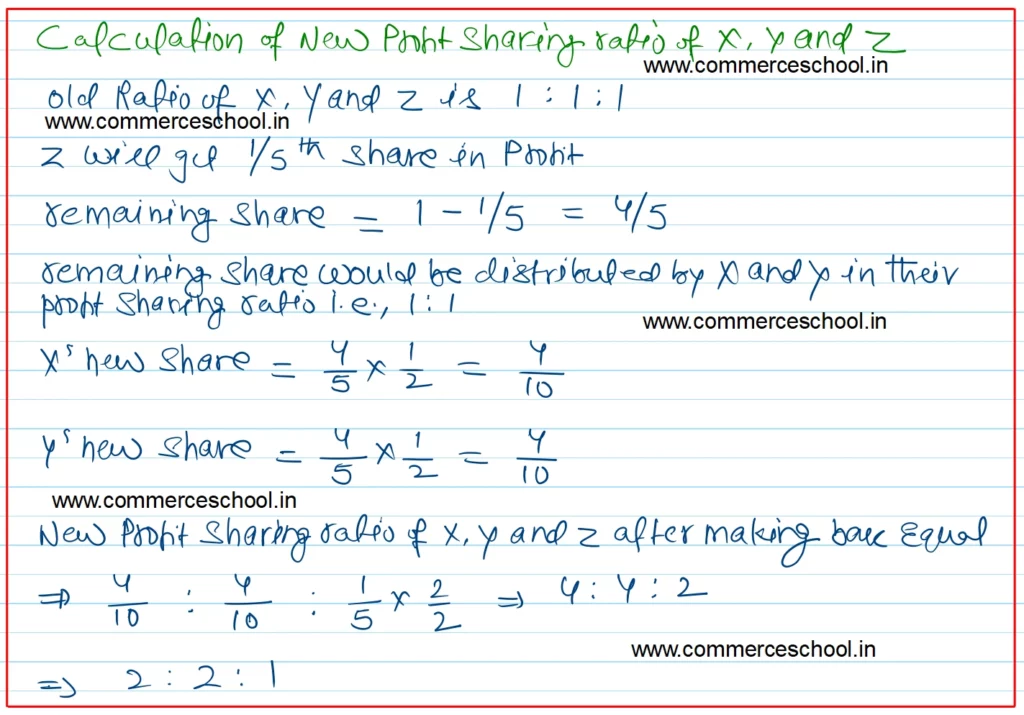 Calculation of New Profit Sharing ratio of X, Y and Z
www.commerceschool.in
old Ratio of X, Y and Z is 1 : 1 : 1
www.commerceschool.in
Z will get 1/5th share in Profit
remaining share = 1 - 1/5 = 4/5
remaining share would be distributed by X and Y in their
profit sharing ratio i.e., 1 : 1
www.commerceschool.in
X's new share = 4/5 × 1/2 = 4/10
Y's new share = 4/5 × 1/2 = 4/10
www.commerceschool.in
New Profit Sharing ratio of X, Y and Z after making base Equal
⇒ 4/10 : 4/10 : 1/5 × 2/2 ⇒ 4 : 4 : 2
www.commerceschool.in
⇒ 2 : 2 : 1